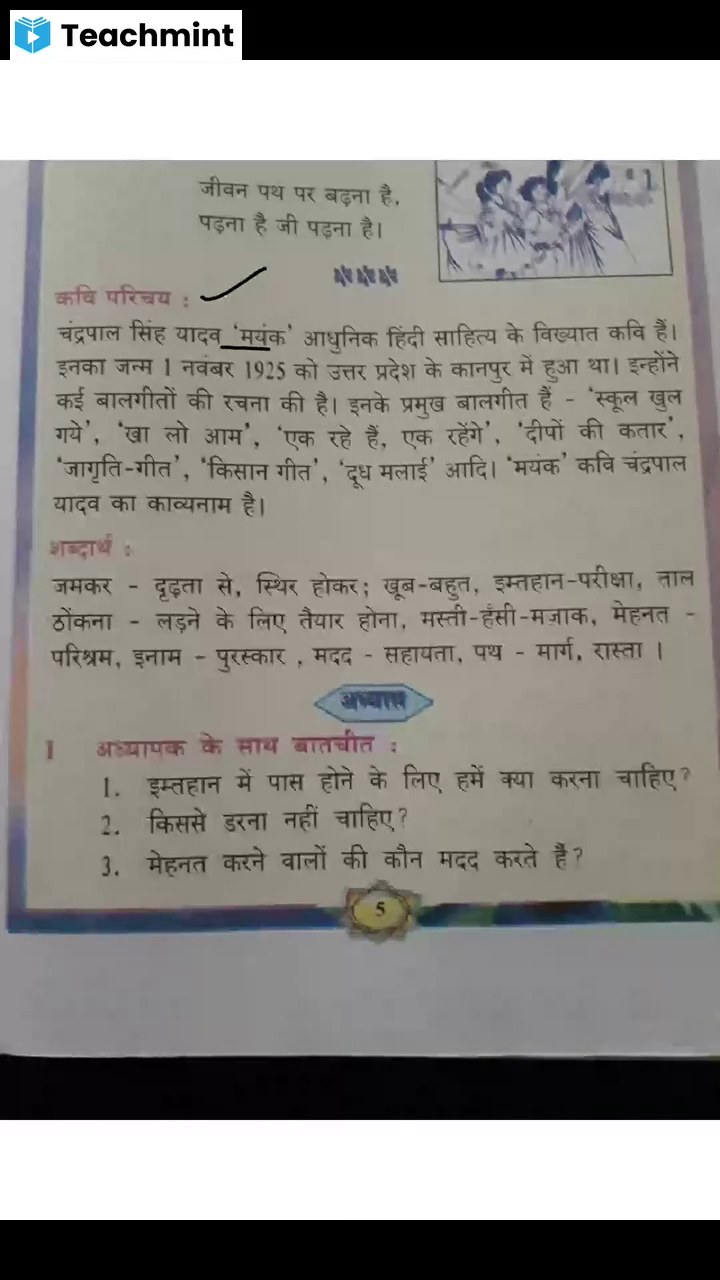 Teachmint
जीवन पथ पर बढ़ना है,
पढ़ना है जी पढ़ना है।
कवि परिचय :
चंद्रपाल सिंह यादव 'मयंक' आधुनिक हिंदी साहित्य के विख्यात कवि हैं।
इनका जन्म 1 नवंबर 1925 को उत्तर प्रदेश के कानपुर में हुआ था। इन्होंने
कई बालगीतों की रचना की है। इनके प्रमुख बालगीत हैं - 'स्कूल खुल
गये', 'खा लो आम', 'एक रहे हैं, एक रहेंगे', 'दीपों की कतार',
'जागृति-गीत', 'किसान गीत', 'दूध मलाई' आदि। 'मयंक' कवि चंद्रपाल
यादव का काव्यनाम है।
शब्दार्थ :
जमकर - दृढ़ता से, स्थिर होकर; खूब-बहुत, इम्तहान-परीक्षा, ताल
ठोंकना - लड़ने के लिए तैयार होना, मस्ती-हँसी-मज़ाक, मेहनत -
परिश्रम, इनाम - पुरस्कार , मदद - सहायता, पथ - मार्ग, रास्ता ।
अभ्यास
I अध्यापक के साथ बातचीत :
1. इम्तहान में पास होने के लिए हमें क्या करना चाहिए?
2. किससे डरना नहीं चाहिए?
3. मेहनत करने वालों की कौन मदद करते हैं?
5